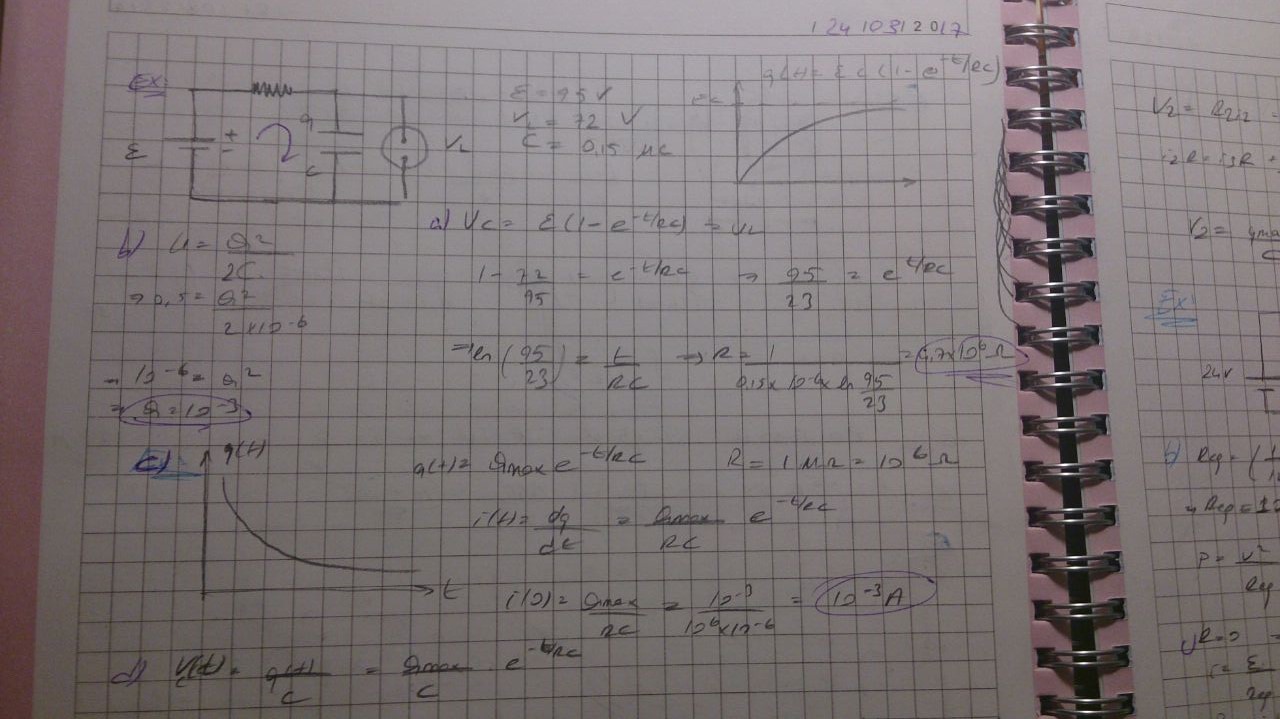 124 10312017
Ex:
q(t) = εC (1 - e^-t/RC)
εC
ε = 95 V
V_L = 72 V
C = 0,15 μC
ε
+
-
q
C
V_L
a) Vc = ε(1 - e^-t/RC) = V_L
1 - 72/95 = e^-t/RC → 95/23 = e^t/RC
⇒ ln(95/23) = t/RC → R = 1/(0.15 x 10^-6 x ln 95/23) = 4,7x10^6 Ω
b) U = Q²/2C
⇒ 0,5 = Q²/(2 x 10^-6)
→ 10^-6 = Q²
⇒ Q = 10^-3
c) q(t)
t
q(t) = Qmax e^-t/RC R = 1 MΩ = 10^6 Ω
i(t) = dq/dt = Qmax/RC e^-t/RC
i(0) = Qmax/RC = 10^-3/(10^6 x 10^-6) = 10^-3 A
d) Vc(t) = q(t)/C = Qmax/C e^-t/RC
V2 = R2i2 =
i2R = i3R +
V2 =
Ex:
24V
b) Req = (
→ Req = 12
P = V²/Req
c) R = 
i = ε/